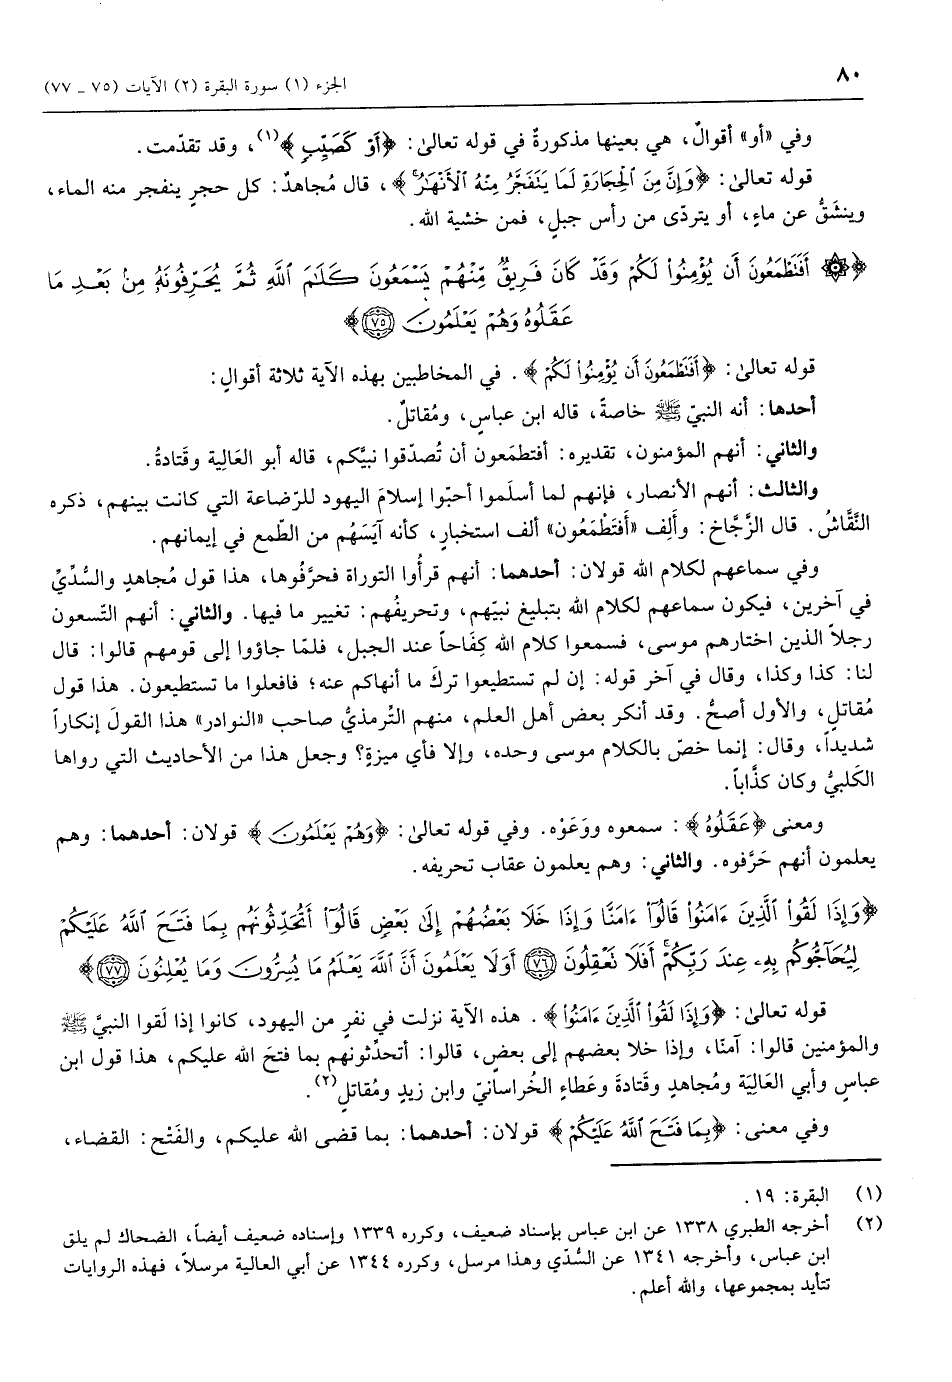 ٨٠
الجزء (١) سورة البقرة (٢) الآيات (٧٥ ـ ٧٧)
وفي «أو» أقوالٌ، هي بعينها مذكورةٌ في قوله تعالىٰ: ﴿أَوْ كَصَيِّبٍ﴾(١)، وقد تقدّمت.
قوله تعالىٰ: ﴿وَإِنَّ مِنَ الْحِجَارَةِ لَمَا يَتَفَجَّرُ مِنْهُ الْأَنْهَٰرُ ۚ﴾، قال مُجاهدٌ: كل حجرٍ ينفجر منه الماء،
وينشَقُّ عن ماءٍ، أو يتردّى من رأس جبلٍ، فمن خشية الله.
﴿۞ أَفَتَطْمَعُونَ أَن يُؤْمِنُوا۟ لَكُمْ وَقَدْ كَانَ فَرِيقٌ مِّنْهُمْ يَسْمَعُونَ كَلَٰمَ ٱللَّهِ ثُمَّ يُحَرِّفُونَهُۥ مِنۢ بَعْدِ مَا
عَقَلُوهُ وَهُمْ يَعْلَمُونَ ﴿٧٥﴾﴾
قوله تعالىٰ: ﴿أَفَتَطْمَعُونَ أَن يُؤْمِنُوا۟ لَكُمْ﴾. في المخاطبين بهذه الآية ثلاثة أقوالٍ:
أحدها: أنه النبيّ ﷺ خاصةً، قاله ابن عباسٍ، ومُقاتلٌ.
والثاني: أنهم المؤمنون، تقديره: أفتطمَعون أن تُصدّقوا نبيَّكم، قاله أبو العَالِية وقَتادةُ.
والثالث: أنهم الأنصار، فإنهم لما أسلَموا أحبّوا إسلامَ اليهود للرّضاعة التي كانت بينهم، ذكره
النَّقَّاشُ. قال الزَّجَّاج: وأَلِف «أَفَتَطْمَعُون» ألف استخبارٍ، كأنه آيَسَهُم من الطّمع في إيمانهم.
وفي سماعهم لكلام الله قولان: أحدهما: أنهم قرأُوا التوراة فحرَّفُوها، هذا قول مُجاهدٍ والسُّدِّيِّ
في آخرين، فيكون سماعهم لكلام الله بتبليغ نبيّهم، وتحريفُهم: تغيير ما فيها. والثاني: أنهم التّسعون
رجلاً الذين اختارهم موسى، فسمعوا كلام الله كِفَاحاً عند الجبل، فلمّا جاؤوا إلى قومهم قالوا: قال
لنا: كذا وكذا، وقال في آخر قوله: إن لم تستطيعوا تركَ ما أنهاكم عنه؛ فافعلوا ما تستطيعون. هذا قول
مُقاتلٍ، والأول أصحُّ. وقد أنكر بعض أهل العلم، منهم التِّرمذيُّ صاحب «النوادر» هذا القولَ إنكاراً
شديداً، وقال: إنما خصّ بالكلام موسى وحده، وإلا فأي ميزةٍ؟ وجعل هذا من الأحاديث التي رواها
الكَلبيُّ وكان كذَّاباً.
ومعنى ﴿عَقَلُوهُ﴾: سمعوه ووَعَوْه. وفي قوله تعالىٰ: ﴿وَهُمْ يَعْلَمُونَ﴾ قولان: أحدهما: وهم
يعلمون أنهم حَرَّفوه. والثاني: وهم يعلمون عقاب تحريفه.
﴿وَإِذَا لَقُوا۟ ٱلَّذِينَ ءَامَنُوا۟ قَالُوٓا۟ ءَامَنَّا وَإِذَا خَلَا بَعْضُهُمْ إِلَىٰ بَعْضٍ قَالُوٓا۟ أَتُحَدِّثُونَهُم بِمَا فَتَحَ ٱللَّهُ عَلَيْكُمْ
لِيُحَآجُّوكُم بِهِۦ عِندَ رَبِّكُمْ ۚ أَفَلَا تَعْقِلُونَ ﴿٧٦﴾ أَوَلَا يَعْلَمُونَ أَنَّ ٱللَّهَ يَعْلَمُ مَا يُسِرُّونَ وَمَا يُعْلِنُونَ ﴿٧٧﴾﴾
قوله تعالىٰ: ﴿وَإِذَا لَقُوا۟ ٱلَّذِينَ ءَامَنُوا۟﴾. هذه الآية نزلت في نفرٍ من اليهود، كانوا إذا لَقوا النبيَّ ﷺ
والمؤمنين قالوا: آمنّا، وإذا خلا بعضهم إلى بعضٍ، قالوا: أتحدِّثونهم بما فتحَ الله عليكم، هذا قول ابن
عباسٍ وأبي العَالِيَة ومُجاهدٍ وقتادةَ وعَطاءٍ الخُراسانيّ وابن زيدٍ ومُقاتلٍ(٢).
وفي معنى: ﴿بِمَا فَتَحَ ٱللَّهُ عَلَيْكُمْ﴾ قولان: أحدهما: بما قضى الله عليكم، والفَتْح: القضاء،
(١) البقرة: ١٩.
(٢) أخرجه الطبري ١٣٣٨ عن ابن عباس بإسناد ضعيف، وكرره ١٣٣٩ وإسناده ضعيف أيضاً، الضحاك لم يلق
ابن عباس، وأخرجه ١٣٤١ عن السُّدّي وهذا مرسل، وكرره ١٣٤٤ عن أبي العالية مرسلاً، فهذه الروايات
تتأيد بمجموعها، والله أعلم.